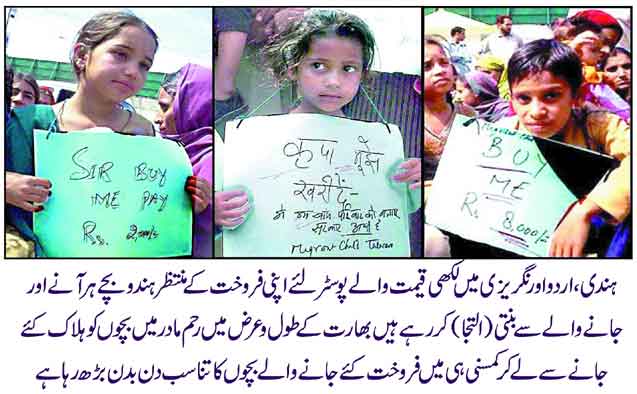 SIR BUY
ME PAY
Rs. 2,000/=
कृपा मुझे
खरीदें-
BUY
ME
Rs. 8,000/=
ہندی، اردو اور نگریزی میں لکھی قیمت والے پوسٹر لئے اپنی فروخت کے منتظر ہندو بچے ہر آنے اور
جانے والے سے بنتی (التجا) کر رہے ہیں بھارت کے طول و عرض میں رحم مادر میں بچوں کو ہلاک کئے
جانے سے لے کر کمسنی ہی میں فروخت کئے جانے والے بچوں کا تناسب دن بدن بڑھ رہا ہے